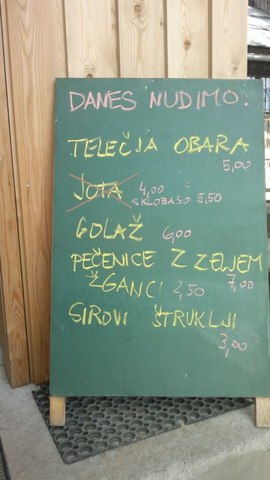 DANES NUDIMO:
TELEČJA OBARA
5,00
JOTA 4,00
S KLOBASO 5,50
GOLAŽ 6,00
PEČENICE Z ZELJEM
7,00
ŽGANCI 2,50
SIROVI ŠTRUKLJI
3,00